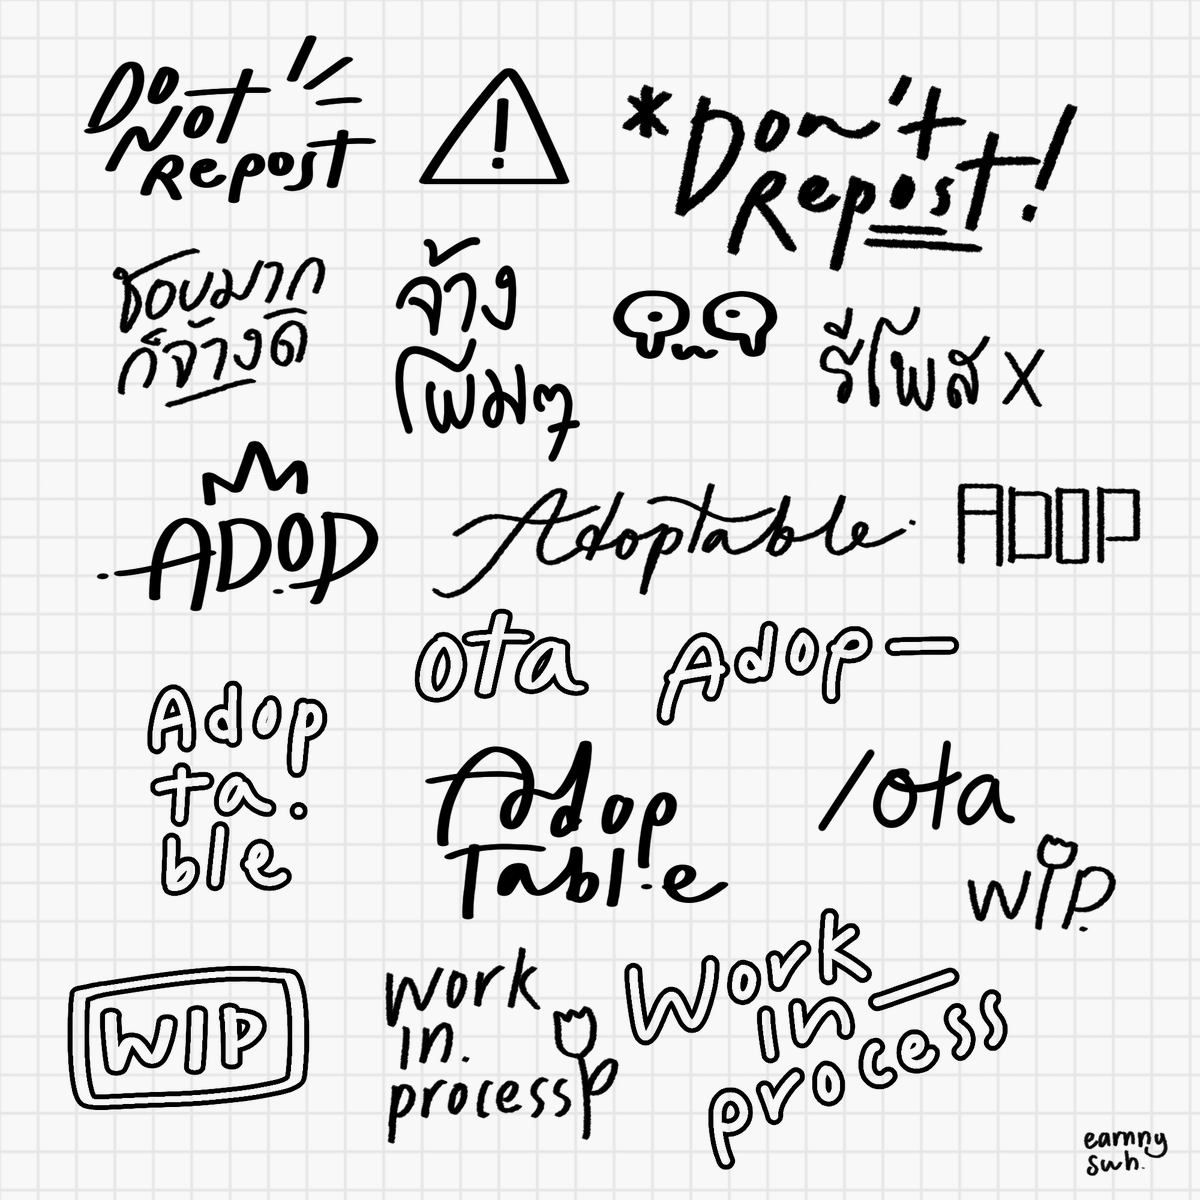 Do
Not
Repost
!
*Don't
Repost!
ชอบมาก
ก็จ้างดิ
จ้าง
โพ่มๆ
รีโพส X
ADOP
Adoptable
ADOP
ota
Adop—
Adop
ta.
ble
Adop
Table
/ota
WIP
WIP
Work
in.
process
Work
in—
process
earnny
swh.